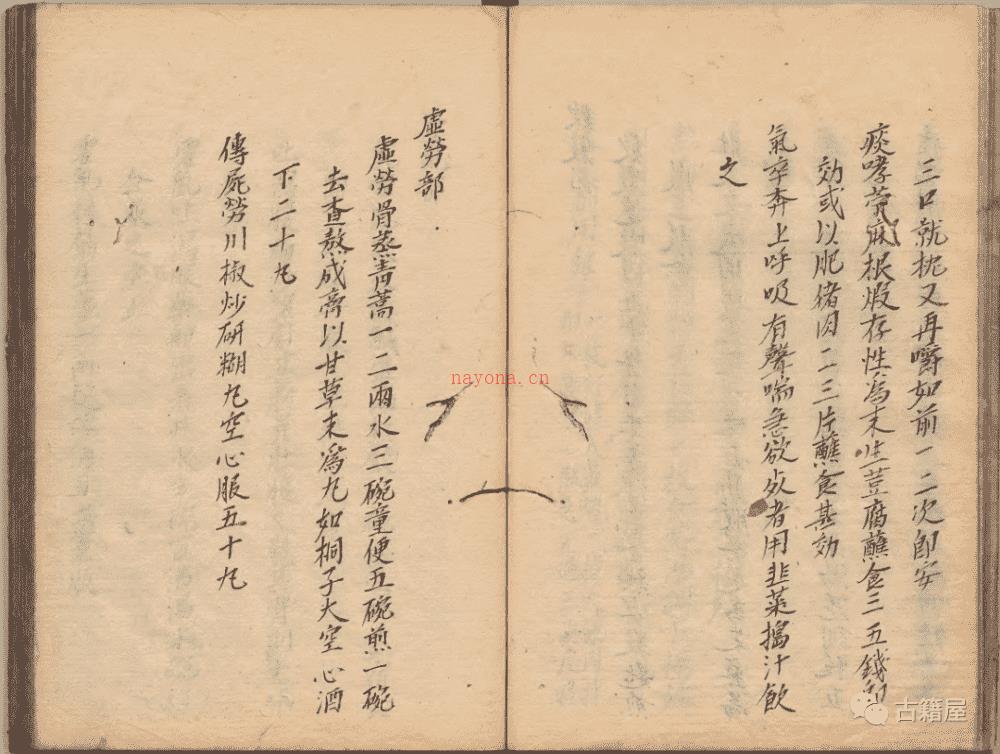 三口就枕又再嚼如前一二次卽安
痰哮苧麻根煆存性為末生荳腐蘸食三五錢卽
効或以肥猪肉二三片蘸食甚効
氣卒奔上呼吸有聲喘急欲死者用韭菜搗汁飲
之
虛勞部
虛勞骨蒸青蒿一二兩水三碗童便五碗煎一碗
去查熬成膏以甘草末為丸如桐子大空心酒
下二十丸
傳屍勞川椒炒研糊丸空心服五十丸
nayona.cn
古籍屋